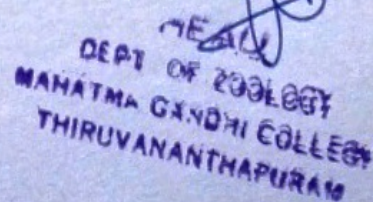 HEAD
DEPT OF ZOOLOGY
MAHATMA GANDHI COLLEGE
THIRUVANANTHAPURAM